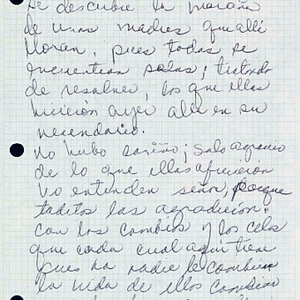 se descubre la mañana
de unas madres que allí
lloran, pues todas se
encuentran solas; tratando
de resolver, los que ellas
hicieron ayer allá en su
vecindario.
no hubo cariño; solo agravio
de lo que ellas ofrecieron
no entenden señor, porque
toditos las agradicion.
con los cambios y los celos
que cada cual aquí tiene
pues ha nadie le combiene
la vida de ellos cambiar